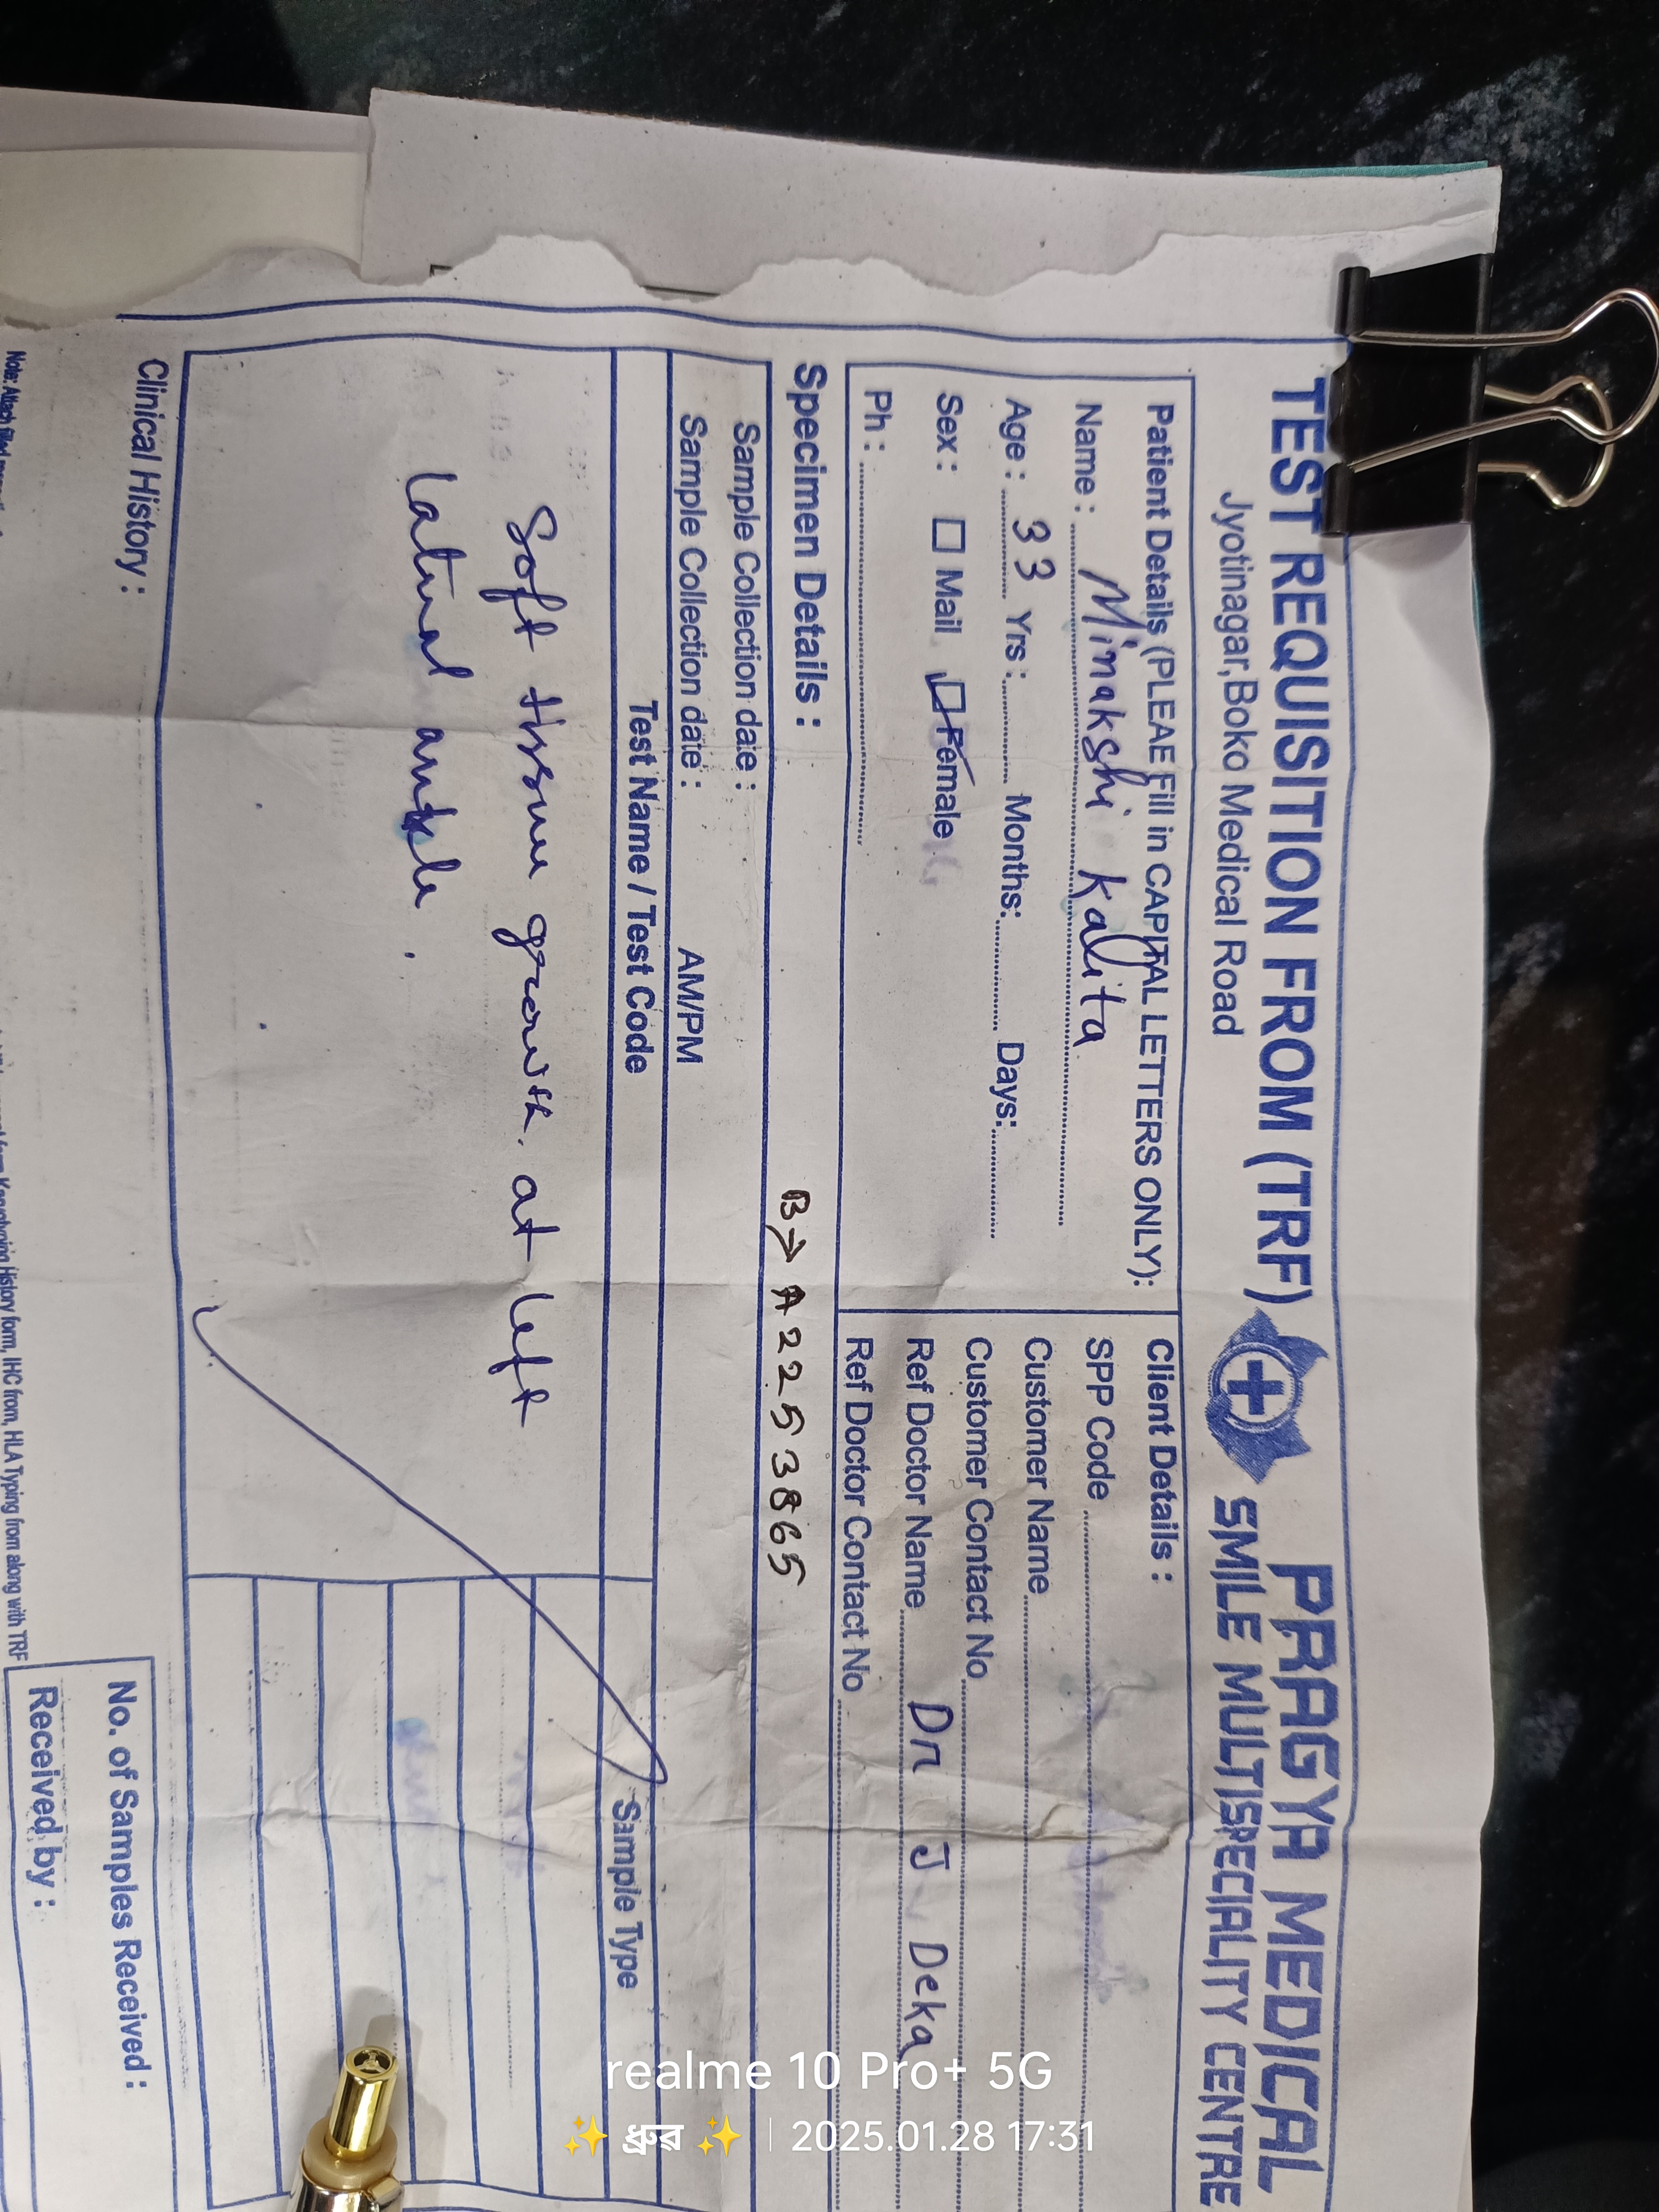 TEST REQUISITION FROM (TRF)
Jyotinagar,Boko Medical Road
PRAGYA MEDICAL
SMILE MULTISPECIALITY CENTRE
Patient Details (PLEAE Fill in CAPITAL LETTERS ONLY):
Name : Minakshi Kalita
Age : 33 Yrs : Months: Days:
Sex : Mail Female
Ph :
Client Details :
SPP Code
Customer Name
Customer Contact No
Ref Doctor Name Dr J Deka
Ref Doctor Contact No
Specimen Details : B→ A2253865
Sample Collection date :
Sample Collection date : AM/PM
Test Name / Test Code
Sample Type
Soft tissue growth at left
lateral ankle.
Clinical History :
No. of Samples Received :
Received by :
History form, IHC from, HLA Typing from along with TRF
realme 10 Pro+ 5G
2025.01.28 17:31